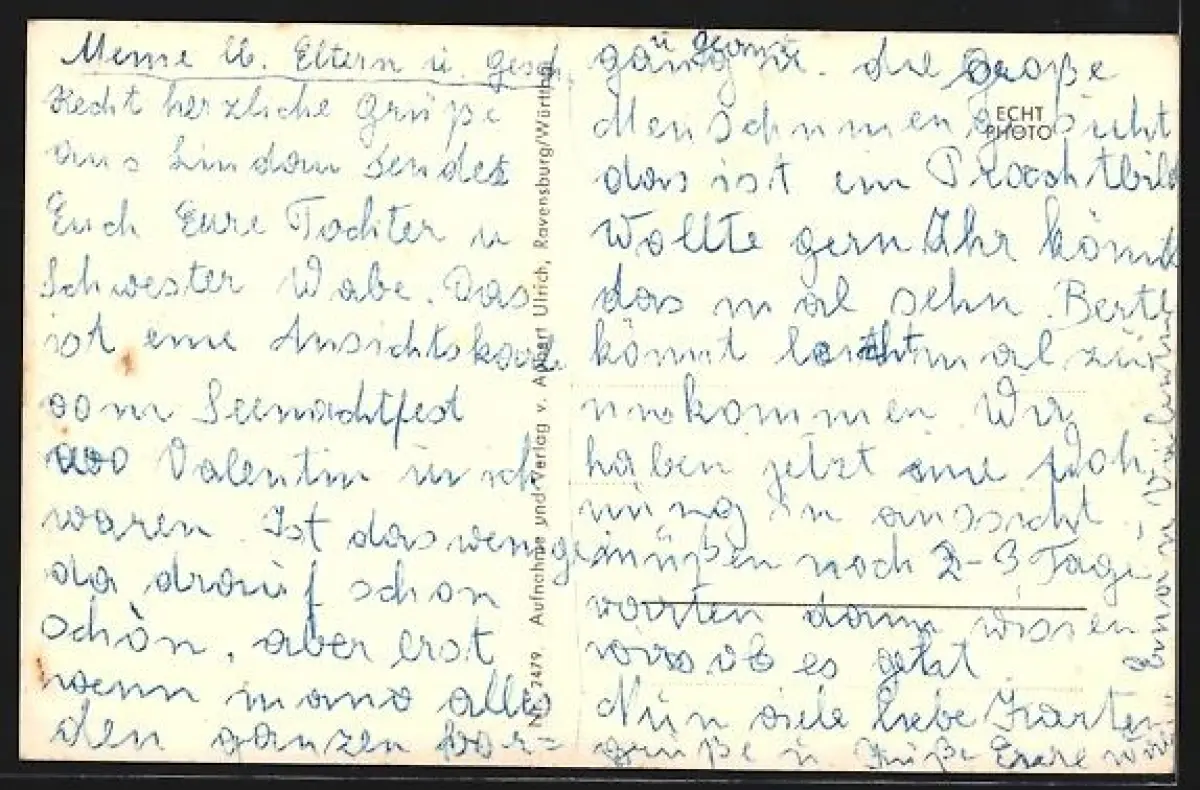 Meine lb. Eltern u. Gesch.
Recht herzliche Grüße
aus Lindau sendet
Euch Eure Tochter u
Schwester Wabe. Das
ist eine Ansichtskarte
vom Seenachtfest
wo Valentin u ich
waren. Ist das wenige
da drauf schon
schön, aber erst
wenn man alles
den ganzen Vor=
gang
u. die große
Menschenmenge sieht
das ist ein Prachtbild
Wollte gern Ihr könnt
das mal sehn. Bertl
könnt leicht mal zu
uns kommen. Wir
haben jetzt eine Woh
nung in aussicht,
müßen noch 2-3 Tage
warten dann wissen
wirs ob es geht
Nun viele liebe Karten
grüße u Küße Eure
Nr. 7479 Aufnahme und Verlag v. Ulrich, Ravensburg/Württbg.
ECHT
PHOTO